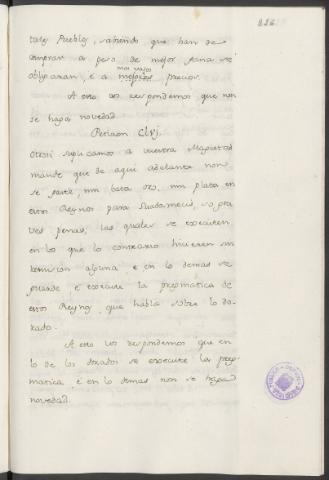 tales Pueblos, sabiendo que han de
comprar a peso de mejor gana se
obligaran, è a mas vajos precios.
A esto vos respondemos que non
se haga novedad.
Peticion CLvj.
Otrosi suplicamos a vuestra Magestad
mande que de aqui adelante non
se gaste, nin bata oro, nin plata en
estos Reynos para Guadameciis, so graves
penas, las quales se executen
en los que lo contrario hicieren sin
remision alguna, è en lo demas se
guarde, è execute la pregmatica de
estos Reynos que habla sobre lo dorado.
A esto vos respondemos que en
lo de los dorados se execute la pregmatica,
è en lo demas non se haga
novedad.